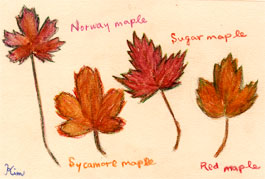 Norway maple
Sugar maple
Sycamore maple
Red maple
Kim